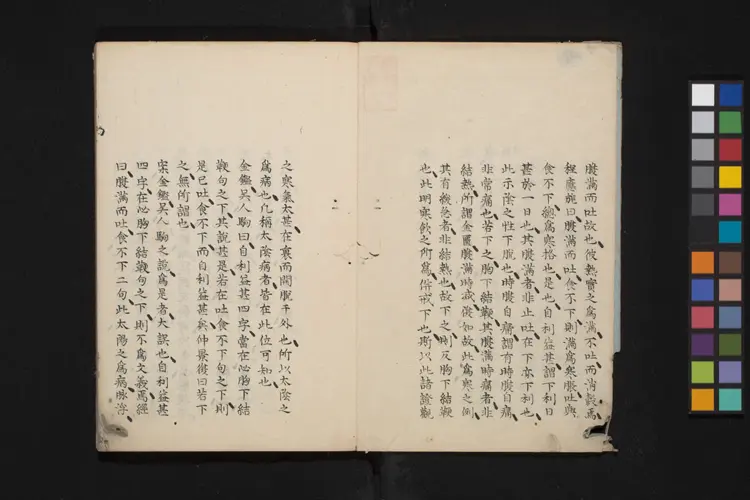 腹滿而吐故也彼熱實之為滿不吐而消穀焉
程應旄曰腹滿而吐食不下則滿為寒脹吐與
食不下總為寒格也是也自利益甚謂下利日
甚於一日也其腹滿者非止吐在下亦下利也
此示陰之性下脫也時腹自痛謂有時腹自痛
非常痛也若下之胸下結鞕其腹滿時痛者非
結熱所謂金匱腹滿時減復如故此為寒之例
其有緩急者非結熱也故下之則反胸下結鞕
也此明寒飲之所為併戒下也斯以此諸證觀
之寒氣太甚在裏而關脫于外也所以太陰之
為病也凡稱太陰病者皆在此位可知也
金鑑吳人駒曰自利益甚四字當在必胸下結
鞕句之下其說甚是若在吐食不下句之下則
是已吐食不下而自利益甚矣仲景復曰若下
之無所謂也
案金鑑吳人駒之說為是者大誤也自利益甚
四字在必胸下結鞕句之下則不為文義焉經
曰腹滿而吐食不下二句此太陽之為病脉浮